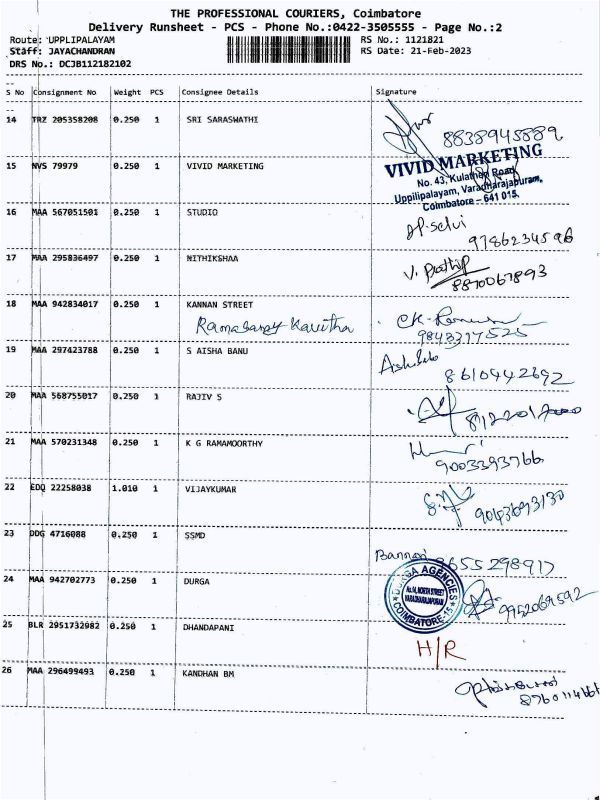 THE PROFESSIONAL COURIERS, Coimbatore
Delivery Runsheet - PCS - Phone No.:0422-3505555 - Page No.:2
Route: UPPLIPALAYAM RS No.: 1121821
Staff: JAYACHANDRAN RS Date: 21-Feb-2023
DRS No.: DCJB112182102
S No Consignment No Weight PCS Consignee Details Signature
14 TRZ 205358208 0.250 1 SRI SARASWATHI
8838945889
15 NVS 79979 0.250 1 VIVID MARKETING
VIVID MARKETING
No. 43, Kulathen Road,
Uppilipalayam, Varadharajapuram,
Coimbatore – 641 015.
16 MAA 567051501 0.250 1 STUDIO
P. Selvi
9786234596
17 MAA 295836497 0.250 1 NITHIKSHAA
V. Prathip
8870067893
18 MAA 942834017 0.250 1 KANNAN STREET
Ramasamy Kavitha
9843317525
19 MAA 297423788 0.250 1 S AISHA BANU
8610442692
20 MAA 568755017 0.250 1 RAJIV S
21 MAA 570231348 0.250 1 K G RAMAMOORTHY
9003393766
22 EDQ 22258038 1.010 1 VIJAYKUMAR
9043693130
23 DDG 4716088 0.250 1 SSMD
Bannari 8655298917
24 MAA 942702773 0.250 1 DURGA
DURGA AGENCIES
VARADHARAJAPURAM
COIMBATORE-15
9952069592
25 BLR 2951732982 0.250 1 DHANDAPANI
H/R
26 MAA 296499493 0.250 1 KANDHAN BM